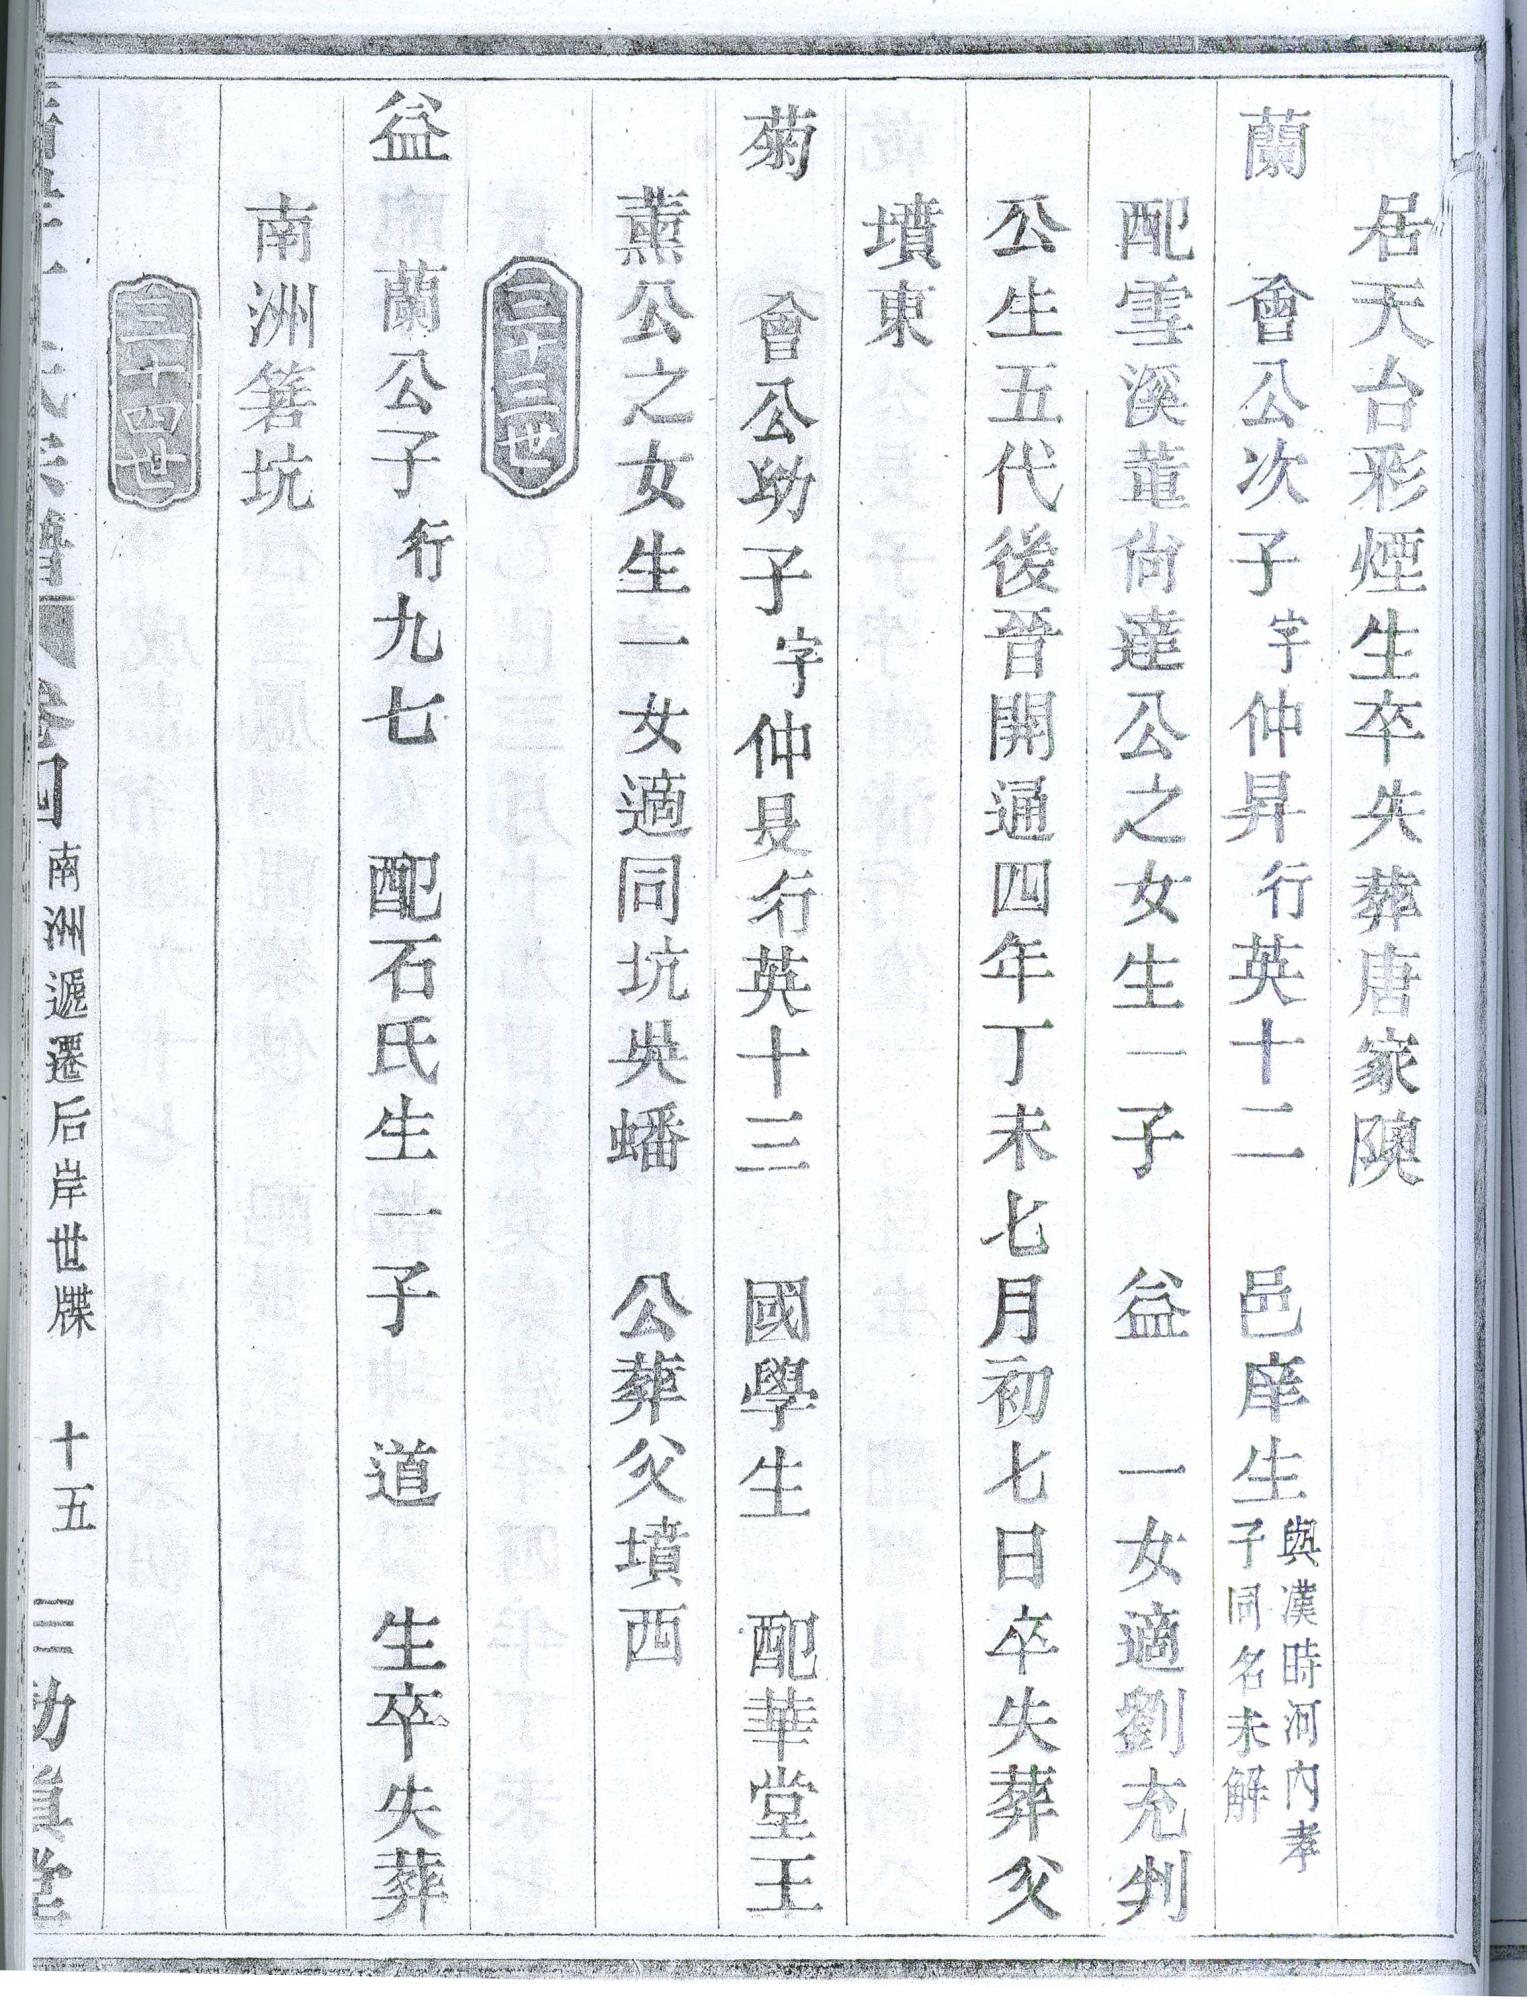 居天台彩煙生卒失葬唐家隩
蘭 會公次子字仲昇行英十二 邑庠生與漢時河內孝子同名未解
配雪溪董尙達公之女生一子 益 一女適劉充州
公生五代後晉開通四年丁未七月初七日卒失葬父
墳東
菊 會公幼子字仲旻行英十三 國學生 配華堂王
薰公之女生一女適同坑吳蟠 公葬父墳西
三十三世
益 蘭公子行九七 配石氏生一子 道 生卒失葬
南洲箬坑
三十四世
宗譜 卷四 南洲遞遷后岸世牒 十五 三勋真堂